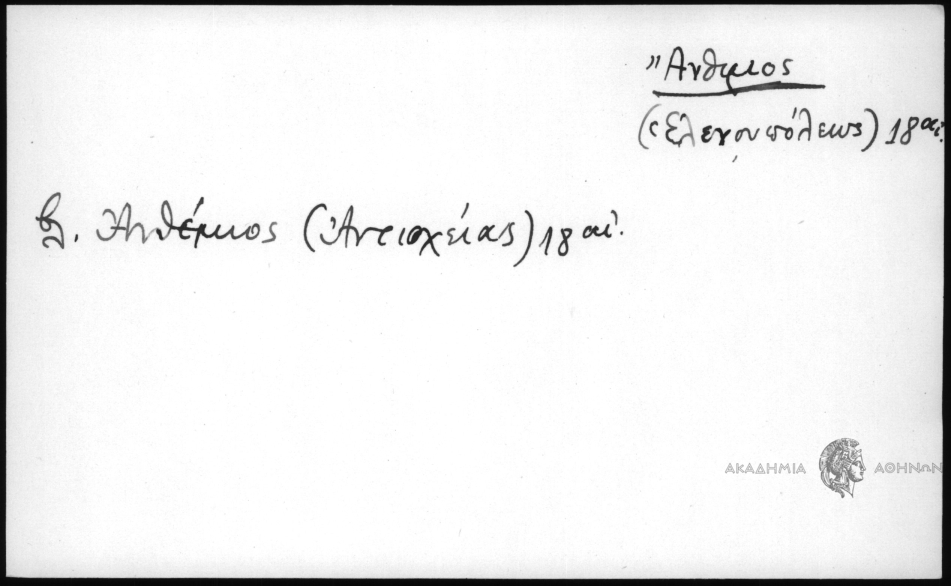 Ἄνθιμος
(Ἑλενουπόλεως) 18 αἰ.
βλ. Ἀνθέμιος (Ἀντιοχείας) 18 αἰ.
ΑΚΑΔΗΜΙΑ ΑΘΗΝΩΝ